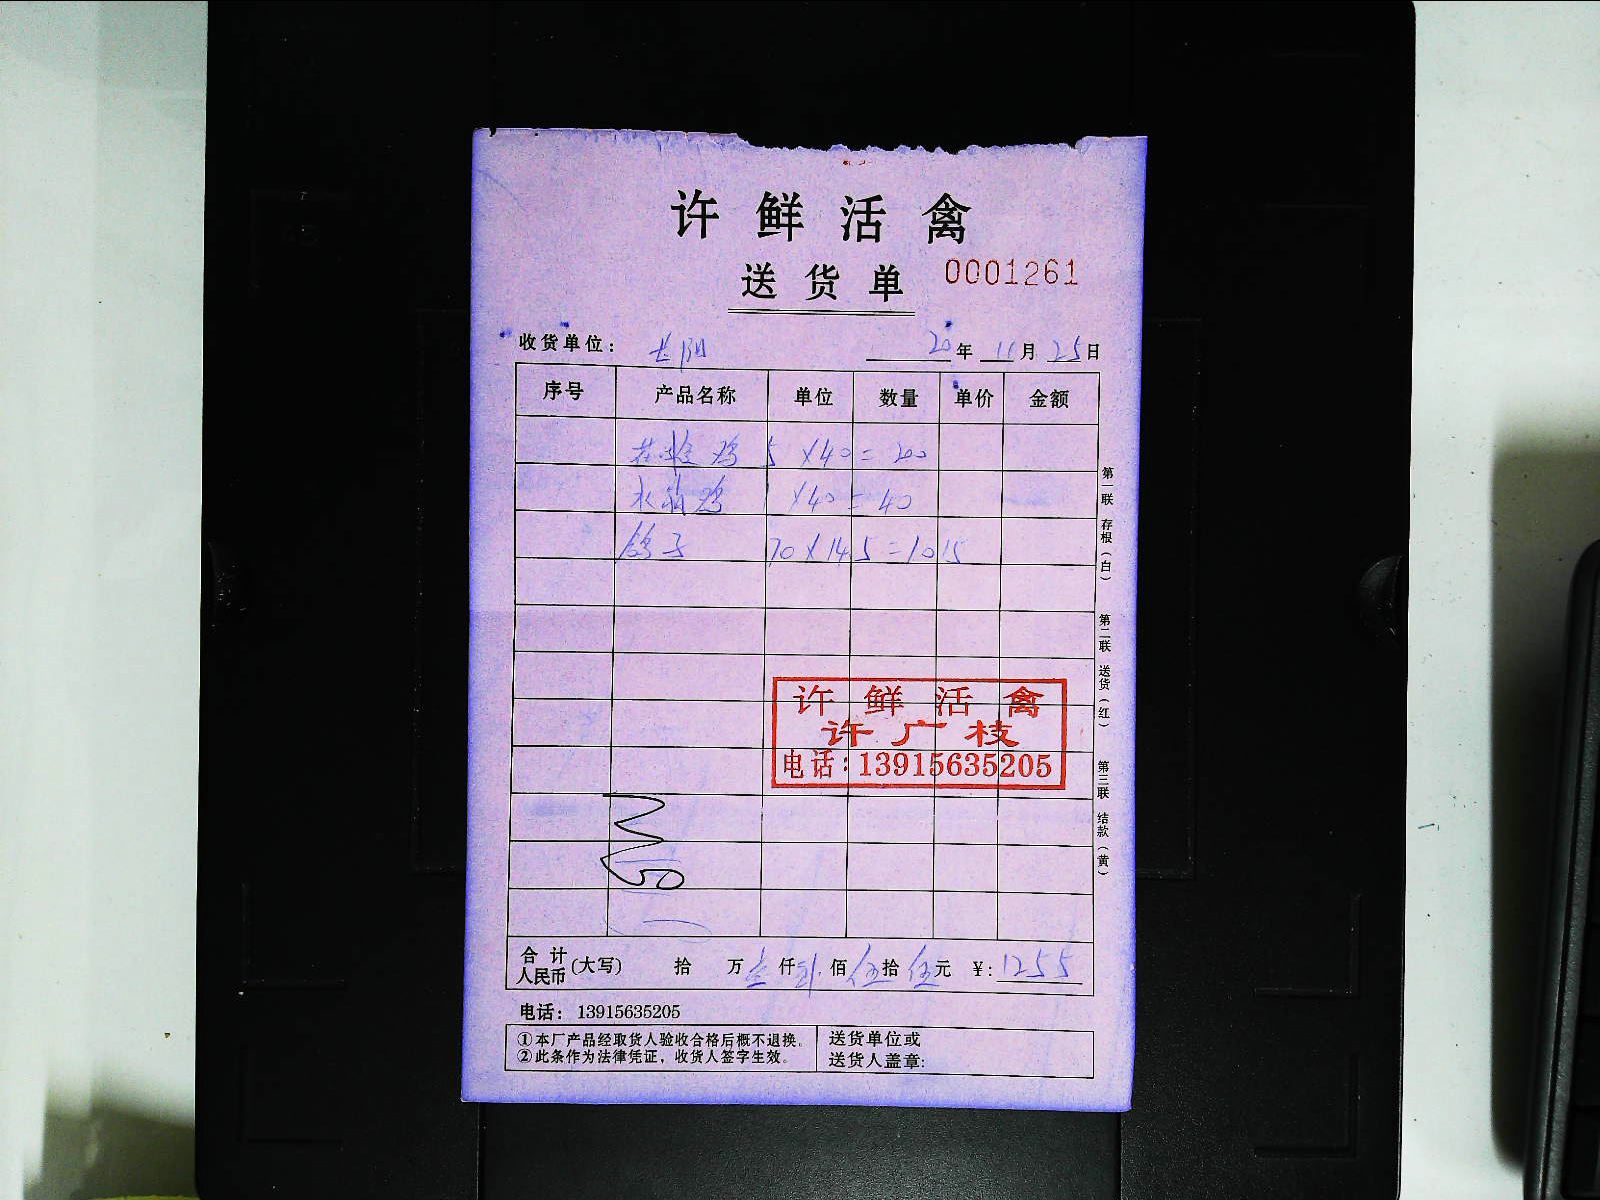 许鲜活禽
送货单 0001261
收货单位： 20年 11月 25日
序号 产品名称 单位 数量 单价 金额
鸡 5 ×40 = 200
鸡 ×40 = 40
鸽子 70 × 14.5 = 1015
许鲜活禽
许广枝
电话：13915635205
合计人民币(大写) 拾 万 壹仟 贰佰 伍拾 伍元 ¥：1255
电话： 13915635205
①本厂产品经取货人验收合格后概不退换。
②此条作为法律凭证，收货人签字生效。
送货单位或
送货人盖章：
第一联 存根（白）
第二联 送货（红）
第三联 结款（黄）